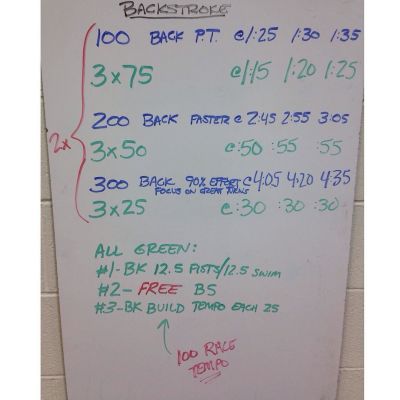 BACKSTROKE
100 BACK P.T. @1:25 1:30 1:35
3x75 @1:15 1:20 1:25
200 BACK FASTER @ 2:45 2:55 3:05
3x50 @:50 :55 :55
300 BACK 90% EFFORT @4:05 4:20 4:35
FOCUS ON GREAT TURNS
3x25 @:30 :30 :30
2x
ALL GREEN:
#1-BK 12.5 FISTS/12.5 SWIM
#2- FREE BS
#3-BK BUILD TEMPO EACH 25
100 RACE
TEMPO